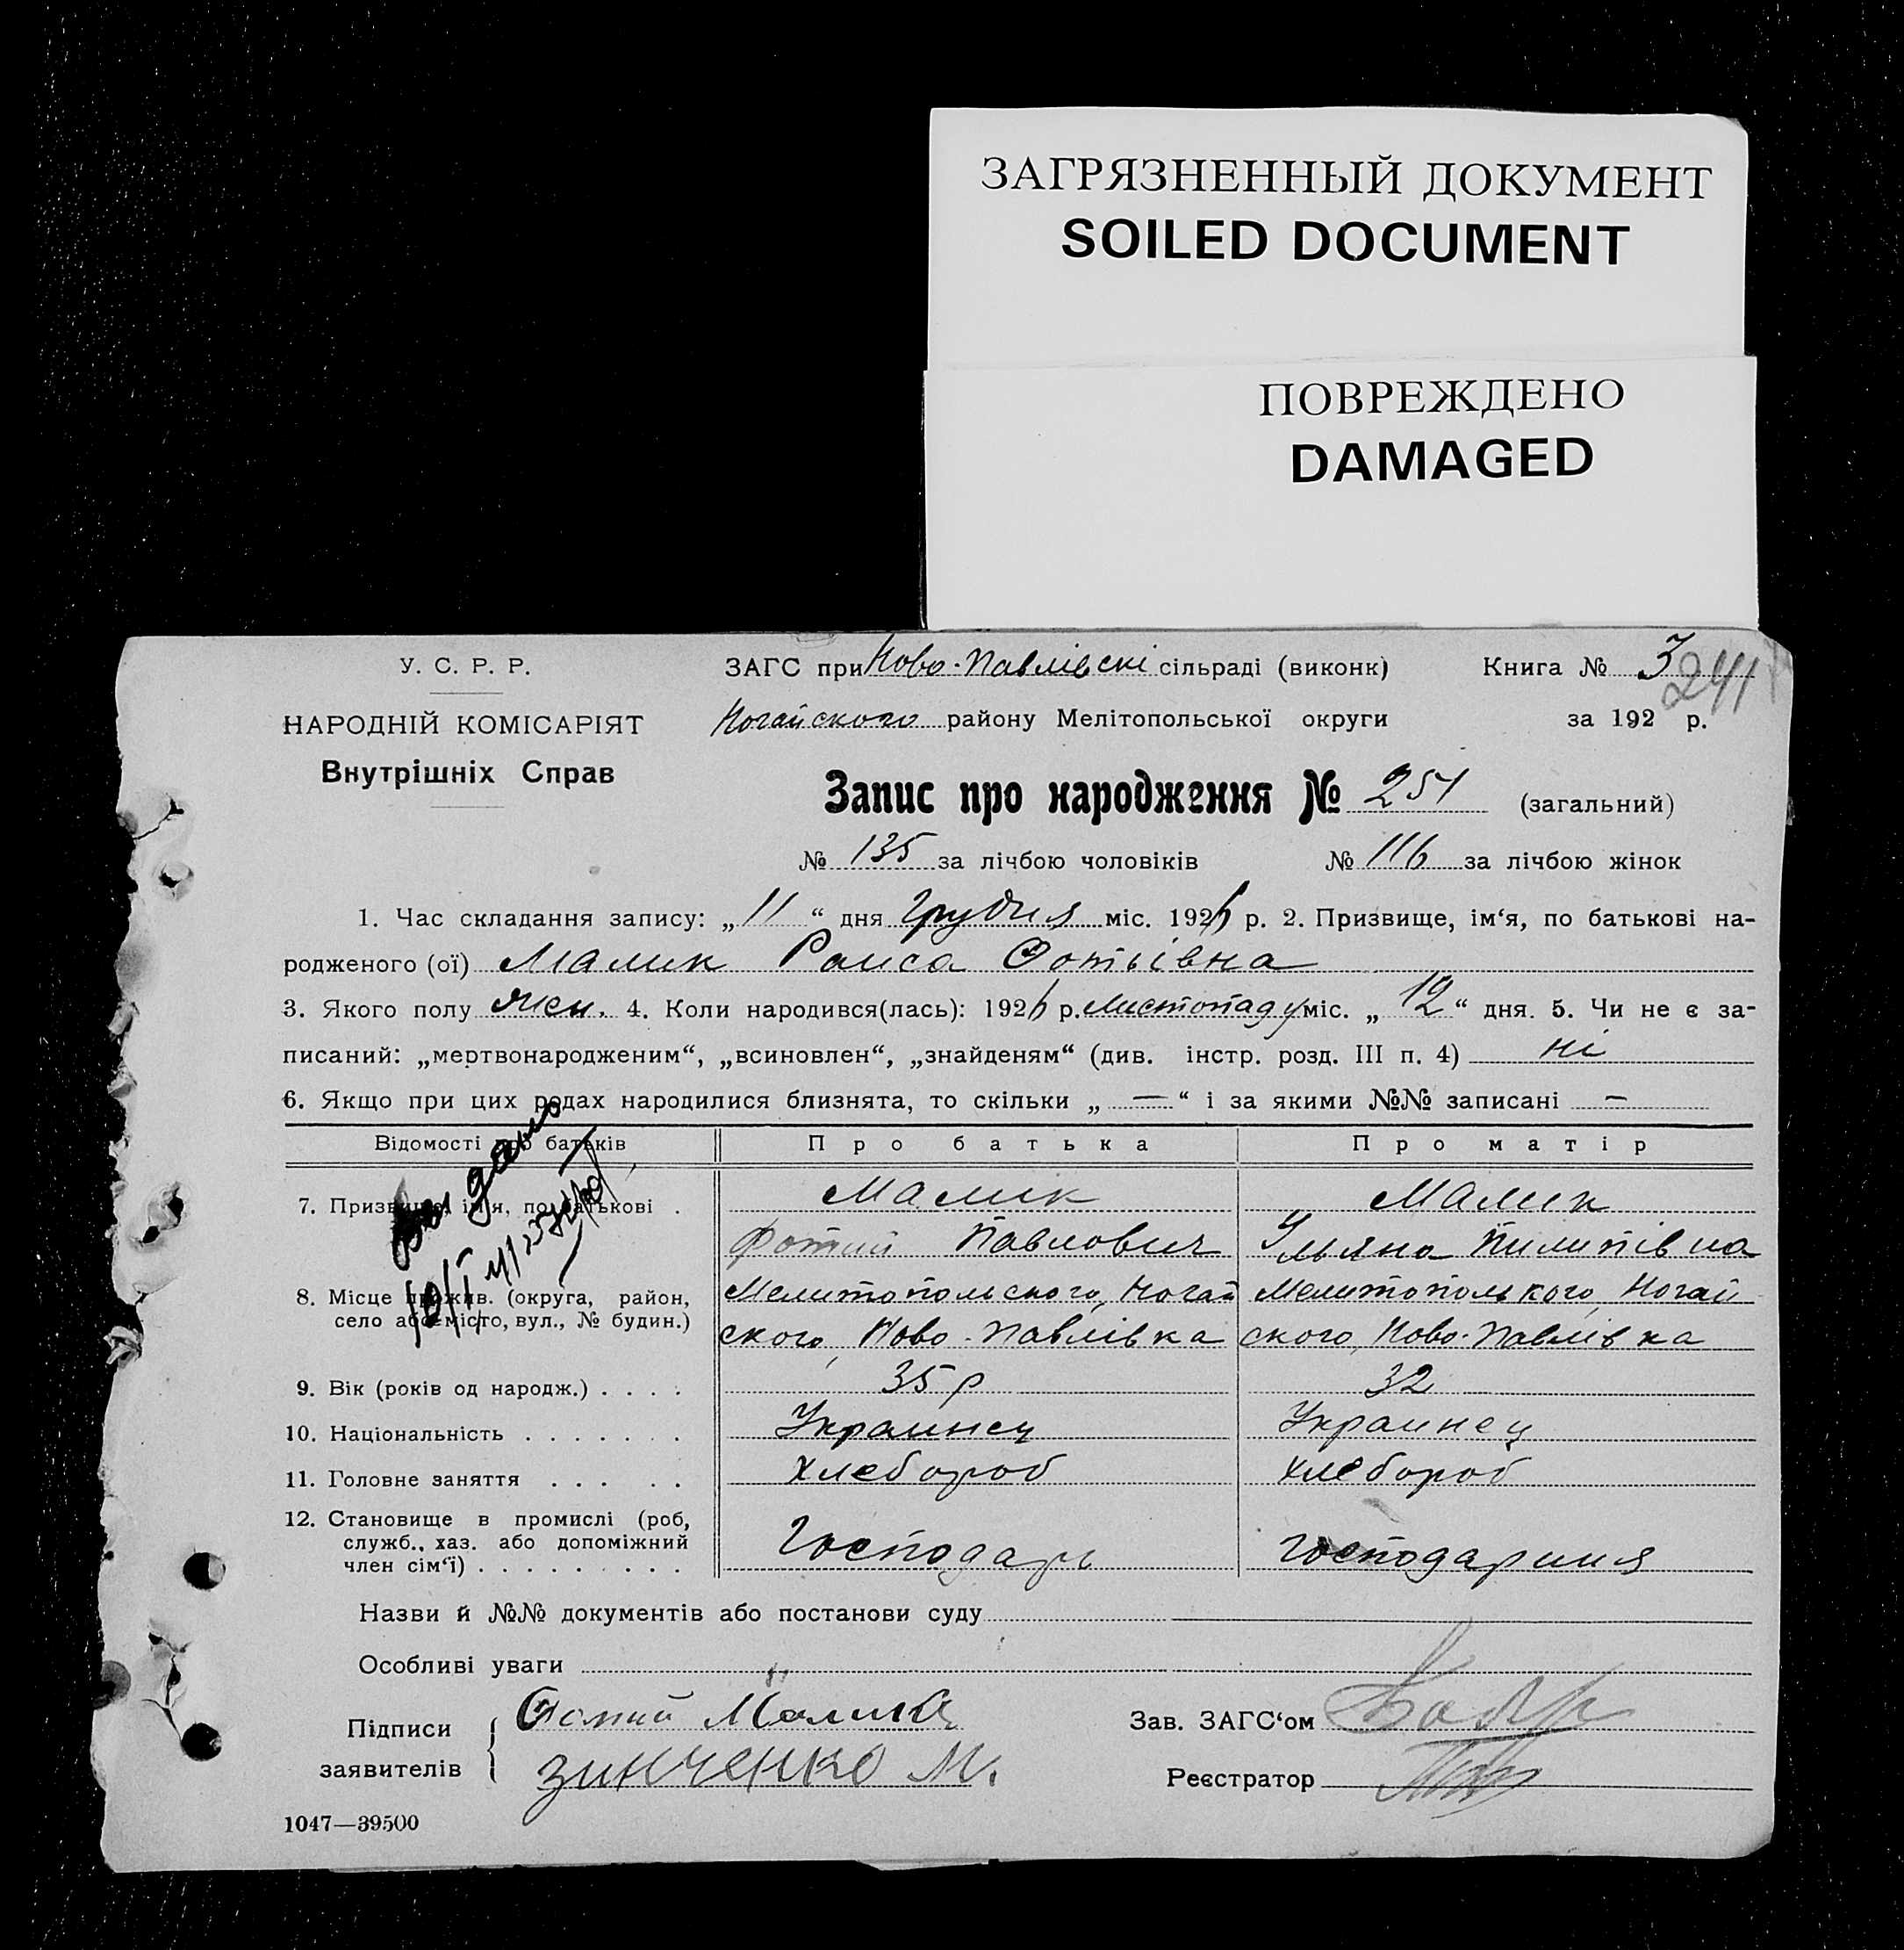 ЗАГРЯЗНЕННЫЙ ДОКУМЕНТ
SOILED DOCUMENT
ПОВРЕЖДЕНО
DAMAGED
У. С. Р. Р.
НАРОДНІЙ КОМІСАРІЯТ
Внутрішніх Справ
ЗАГС при Ново-Павлівскі сільраді (виконк)
Книга № 3
241
Ногайского району Мелітопольської округи
за 192 р.
Запис про народження № 251 (загальний)
№ 135 за лічбою чоловіків № 116 за лічбою жінок
1. Час складання запису: „11“ дня Грудня міс. 1926 р. 2. Призвище, ім‘я, по батькові на-
родженого (ої) Малик Раиса Фотьівна
3. Якого полу жен. 4. Коли народився(лась): 1926 р. листопаду міс. „12“ дня. 5. Чи не є за-
писаний: „мертвонародженим“, „всиновлен“, „знайденям“ (див. інстр. розд. III п. 4) ні
6. Якщо при цих родах народилися близнята, то скільки „ — “ і за якими №№ записані —
Відомості про батьків Про батька Про матір
7. Призвище, ім‘я, по батькові . Малик Малик
Фотий Павлович Ульяна Пилипівна
8. Місце прожив. (округа, район, Мелитопольского, Ногай Мелитополького, Ногай
село або місто, вул., № будин.) ского, Ново-Павлівка ского, Ново-Павлівка
9. Вік (років од народж.) . . . . 35 р 32
10. Національність . . . . . . . Украинец Украинец
11. Головне заняття . . . . . Хлебороб Хлебороб
12. Становище в промислі (роб,
служб., хаз. або допоміжний
член сім‘ї) . . . . . . . . . Господарь Господариня
Выдано
Назви й №№ документів або постанови суду
Особливі уваги
Підписи
заявителів
Фотий Малик
Зинченко М.
Зав. ЗАГС‘ом
Реєстратор
1047—39500